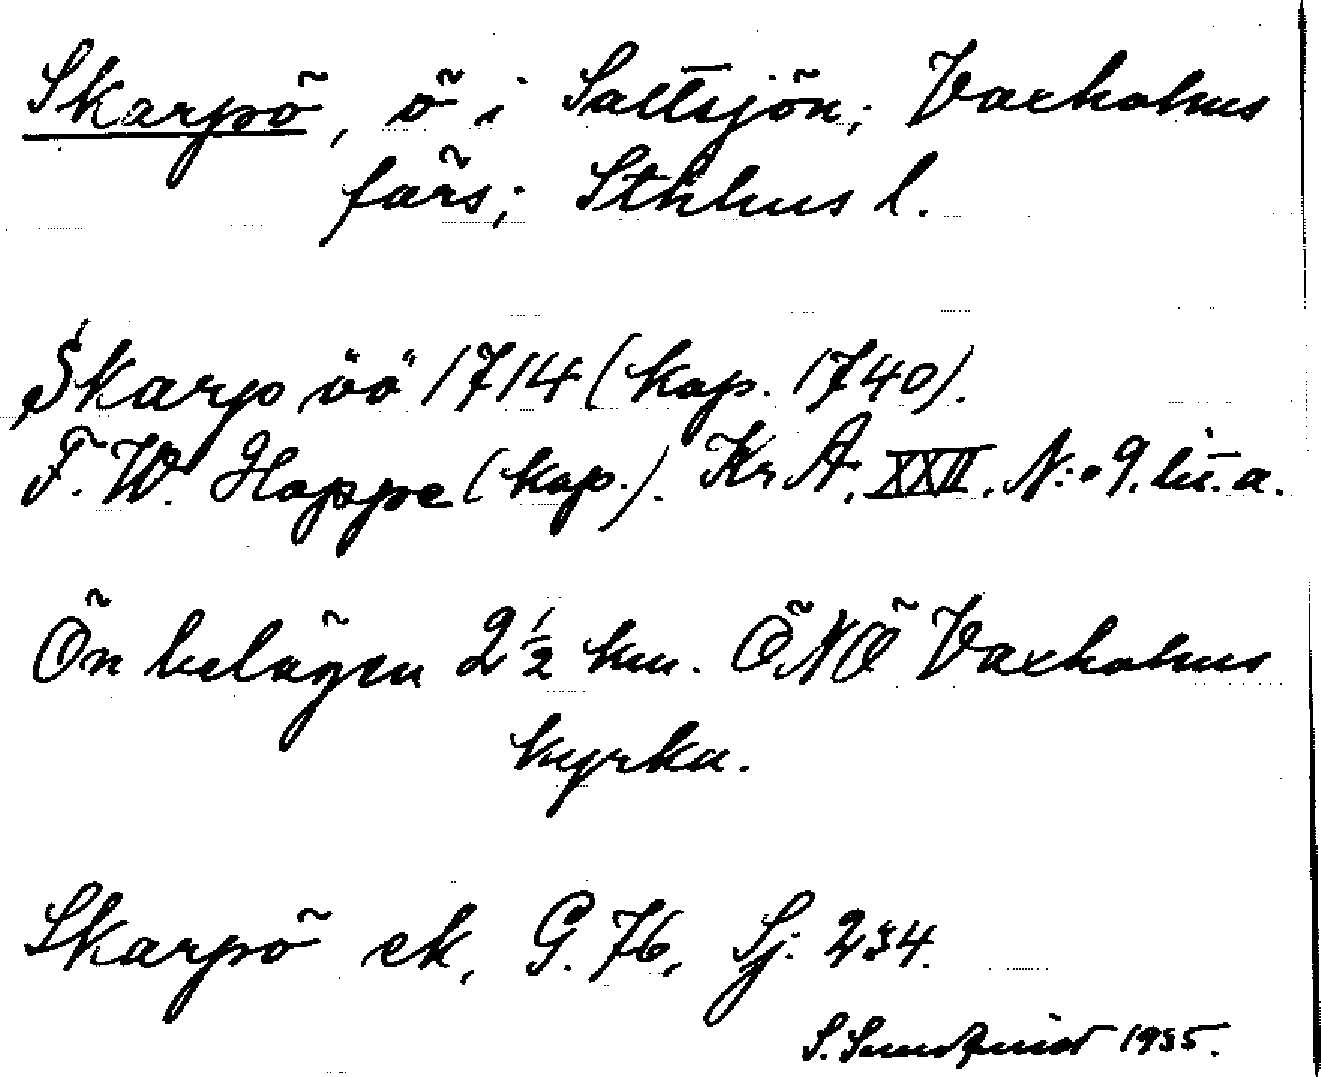 Skarpö, ö i Saltsjön; Vaxholms
förs; Sthlms l.
Skarp öö 1714 (kop. 1740).
F. W. Hoppe (kop.). Kr A. XXII. N:o 9. lit. a.
Ön belägen 2½ km. ÖNÖ Vaxholms
kyrka.
Skarpö ek, G. 76, Sj. 234.
S. Sundqvist 1935.